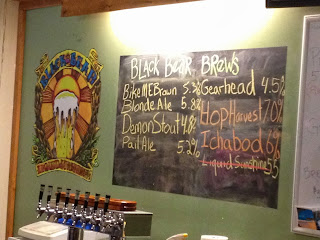 BLACK BEAR
BLACK BEAR BREWS
BikeME Brown 5.3%
Blonde Ale 5.8%
Demon Stout 4.8%
Pail Ale 5.2%
Gearhead 4.5%
Hop Harvest 7.0%
Ichabod
Liquid Sunshine 5.5